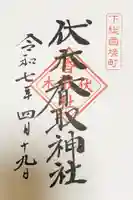 下総国境町
伏木香取神社
令和七年四月十九日